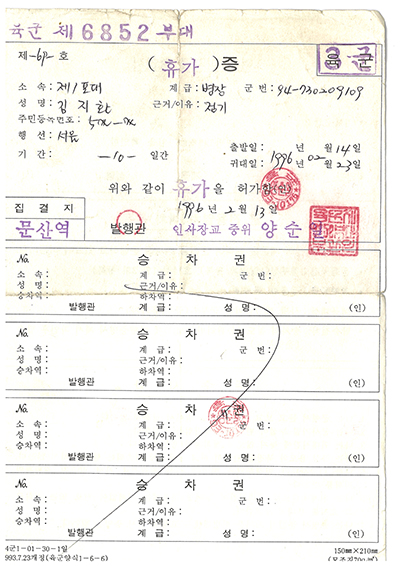 육군 제6852부대
제 -68- 호
(휴가)증
육군
소 속 : 제1포대 계 급 : 병장 군 번 : 94-730209109
성 명 : 김지환 근거/이유 : 정기
주민등록번호 :
행 선 : 서울 출발일 : 년 월 14일
기 간 : -10- 일간 귀대일 : 1996년 02월 23일
위와 같이 휴가을 허가함(인)
1996년 2월 13일
집 결 지
문산역
발행관 인사장교 중위 양순일
No. 승 차 권
소 속 : 계 급 : 군 번 :
성 명 : 근거/이유 :
승차역 : 하차역 :
발행관 계 급 : 성 명 : (인)
No. 승 차 권
소 속 : 계 급 : 군 번 :
성 명 : 근거/이유 :
승차역 : 하차역 :
발행관 계 급 : 성 명 : (인)
No. 승 차 권
소 속 : 계 급 : 군 번 :
성 명 : 근거/이유 :
승차역 : 하차역 :
발행관 계 급 : 성 명 : (인)
No. 승 차 권
소 속 : 계 급 : 군 번 :
성 명 : 근거/이유 :
승차역 : 하차역 :
발행관 계 급 : 성 명 : (인)
4군1-01-30-1일 150㎜×210㎜
993.7.23개정(육군양식1-6-6)